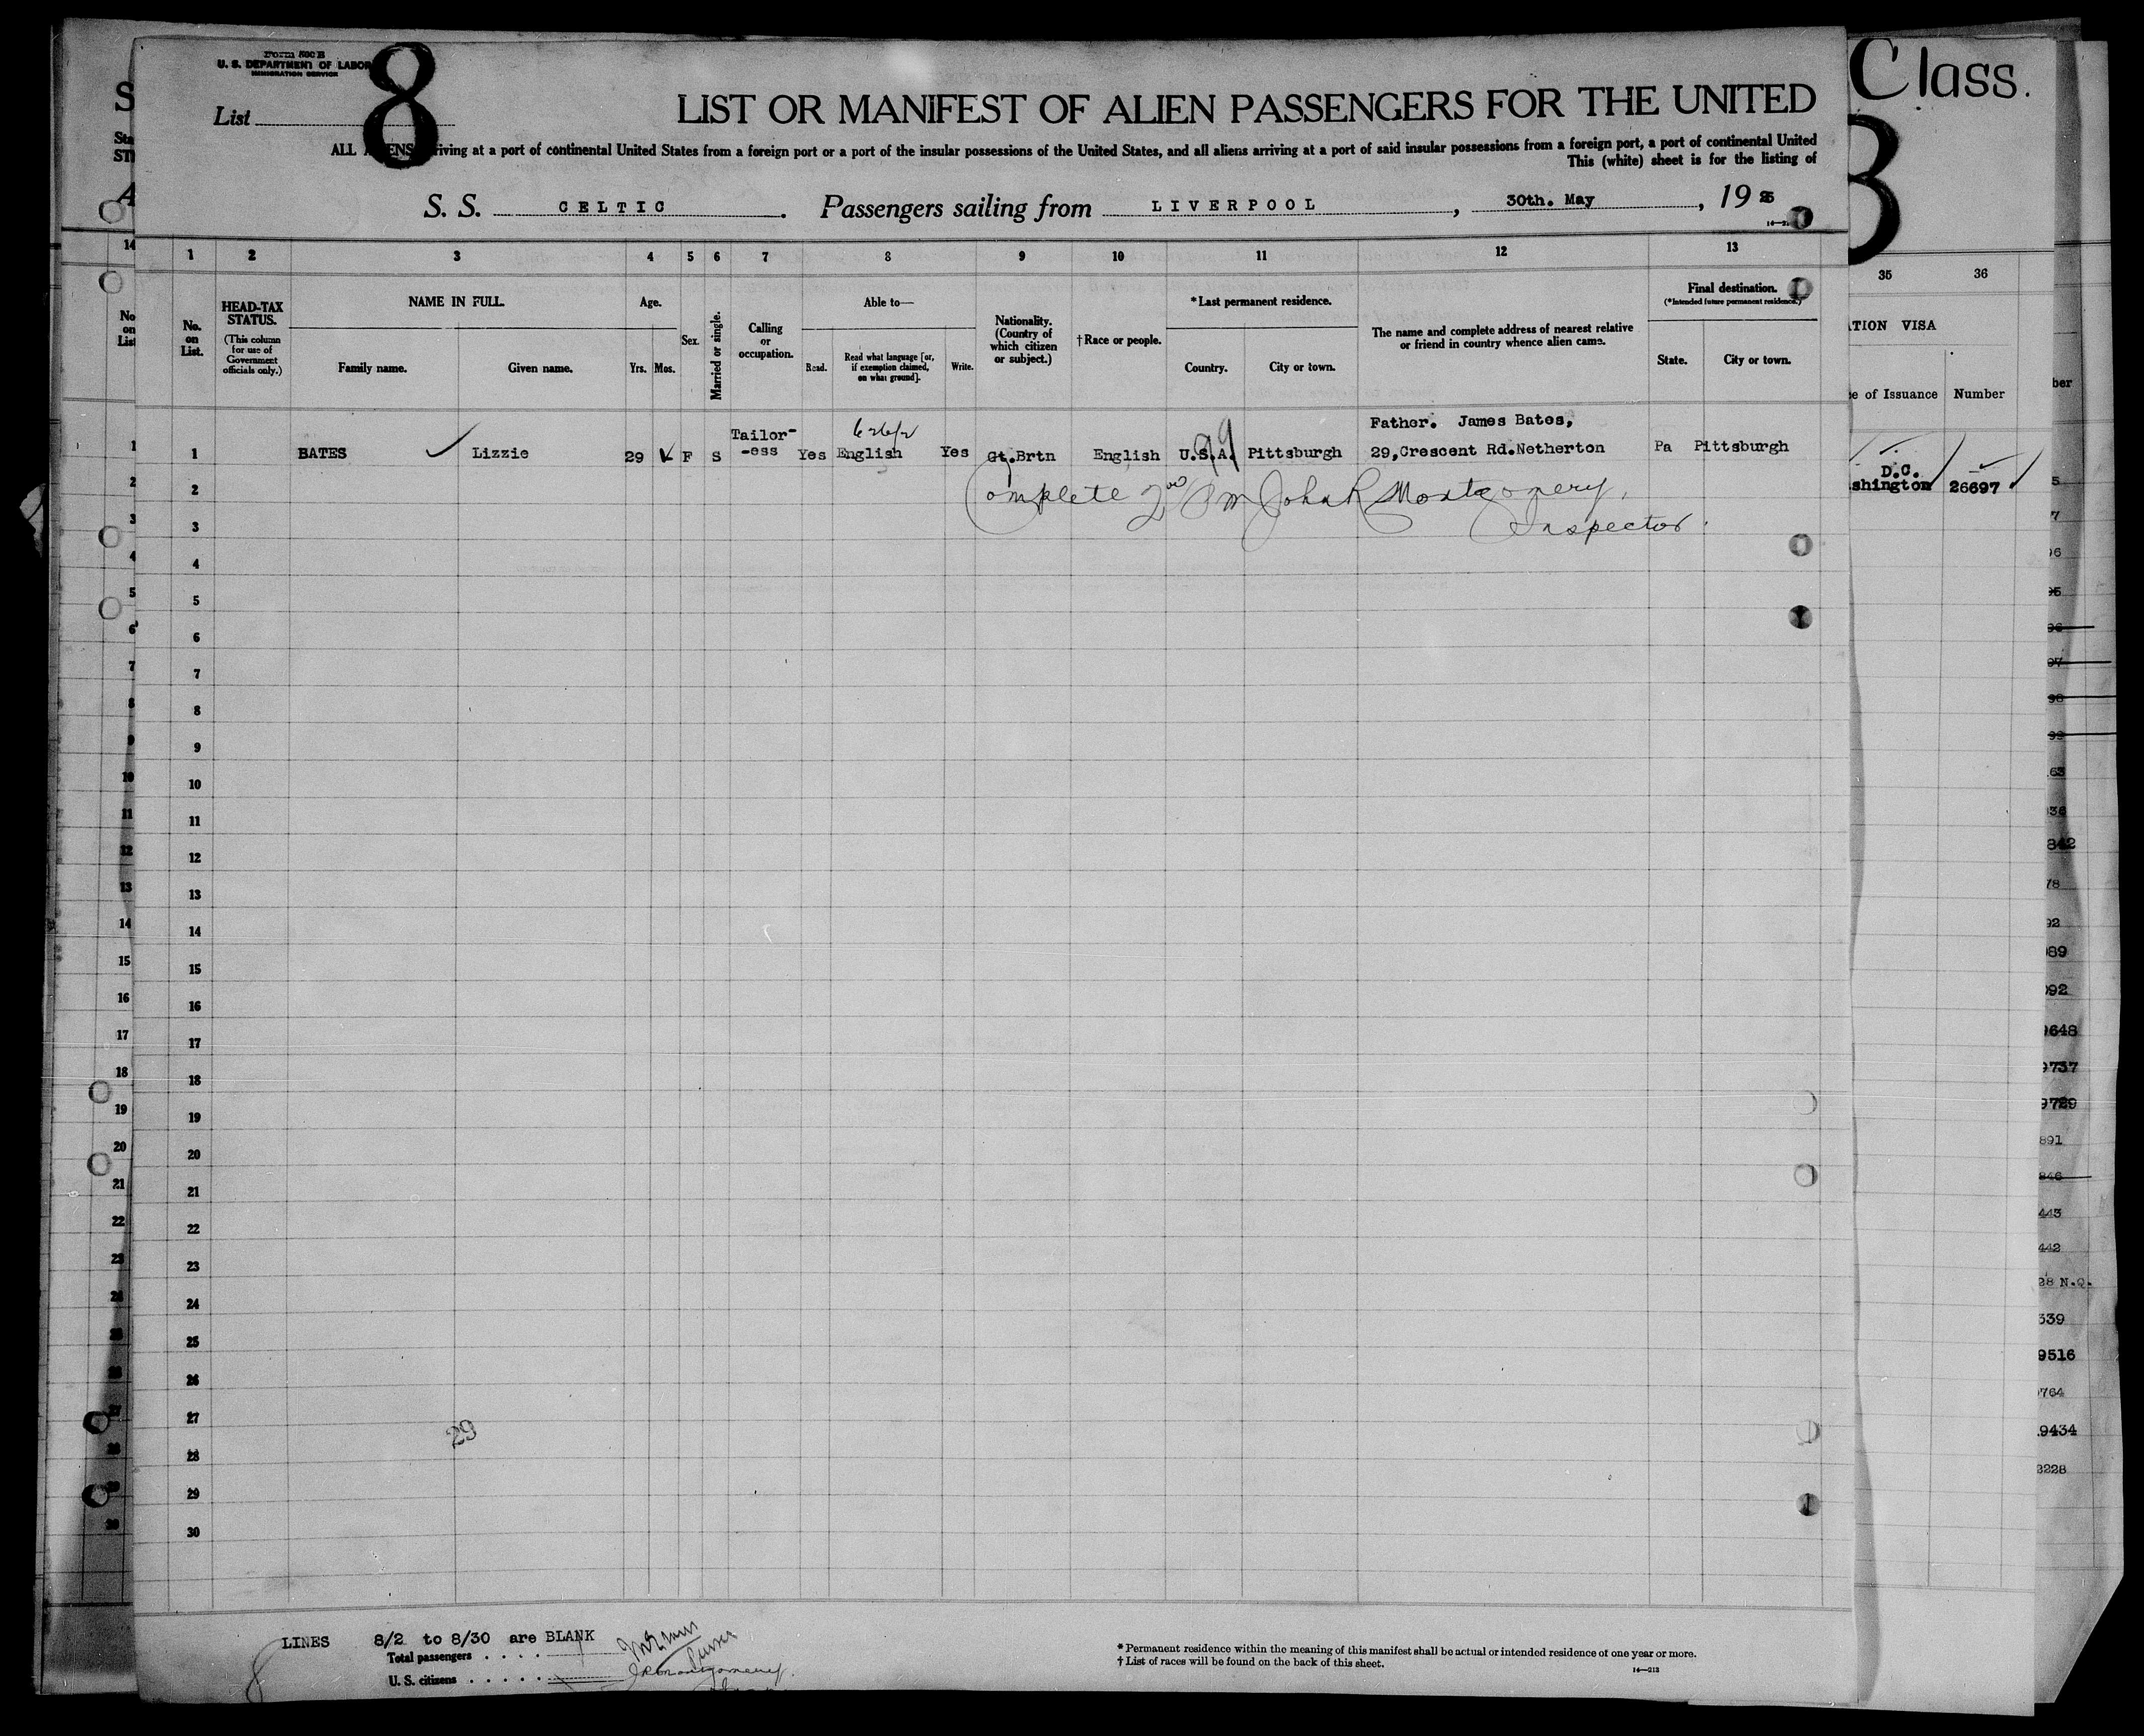 Form 500 B
U. S. DEPARTMENT OF LABOR
IMMIGRATION SERVICE
List 8
Class.
LIST OR MANIFEST OF ALIEN PASSENGERS FOR THE UNITED
ALL ALIENS arriving at a port of continental United States from a foreign port or a port of the insular possessions of the United States, and all aliens arriving at a port of said insular possessions from a foreign port, a port of continental United
This (white) sheet is for the listing of
S. S. CELTIC. Passengers sailing from LIVERPOOL, 30th. May, 19
1 2 3 4 5 6 7 8 9 10 11 12 13
35 36
HEAD-TAX STATUS.
(This column for use of Government officials only.)
No. on List.
NAME IN FULL.
Family name. Given name.
Age.
Yrs. Mos.
Sex.
Married or single.
Calling or occupation.
Able to—
Read. Read what language [or, if exemption claimed, on what ground]. Write.
Nationality. (Country of which citizen or subject.)
†Race or people.
*Last permanent residence.
Country. City or town.
The name and complete address of nearest relative or friend in country whence alien came.
Final destination.
(*Intended future permanent residence.)
State. City or town.
ATION VISA
e of Issuance Number
1 BATES Lizzie 29 F S Tailor-
-ess Yes English Yes Gt.Brtn English U.S.A. Pittsburgh Father. James Bates,
29,Crescent Rd.Netherton Pa Pittsburgh
D.C.
shington 26697
2 Complete 2nd John R Montgomery,
3 Inspector.
4
5
6
7
8
9
10
11
12
13
14
15
16
17
18
19
20
21
22
23
24
25
26
27
29
28
29
30
LINES 8/2 to 8/30 are BLANK
Total passengers . . . .
U. S. citizens . . . . .
JRMontgomery
* Permanent residence within the meaning of this manifest shall be actual or intended residence of one year or more.
† List of races will be found on the back of this sheet.
14—213